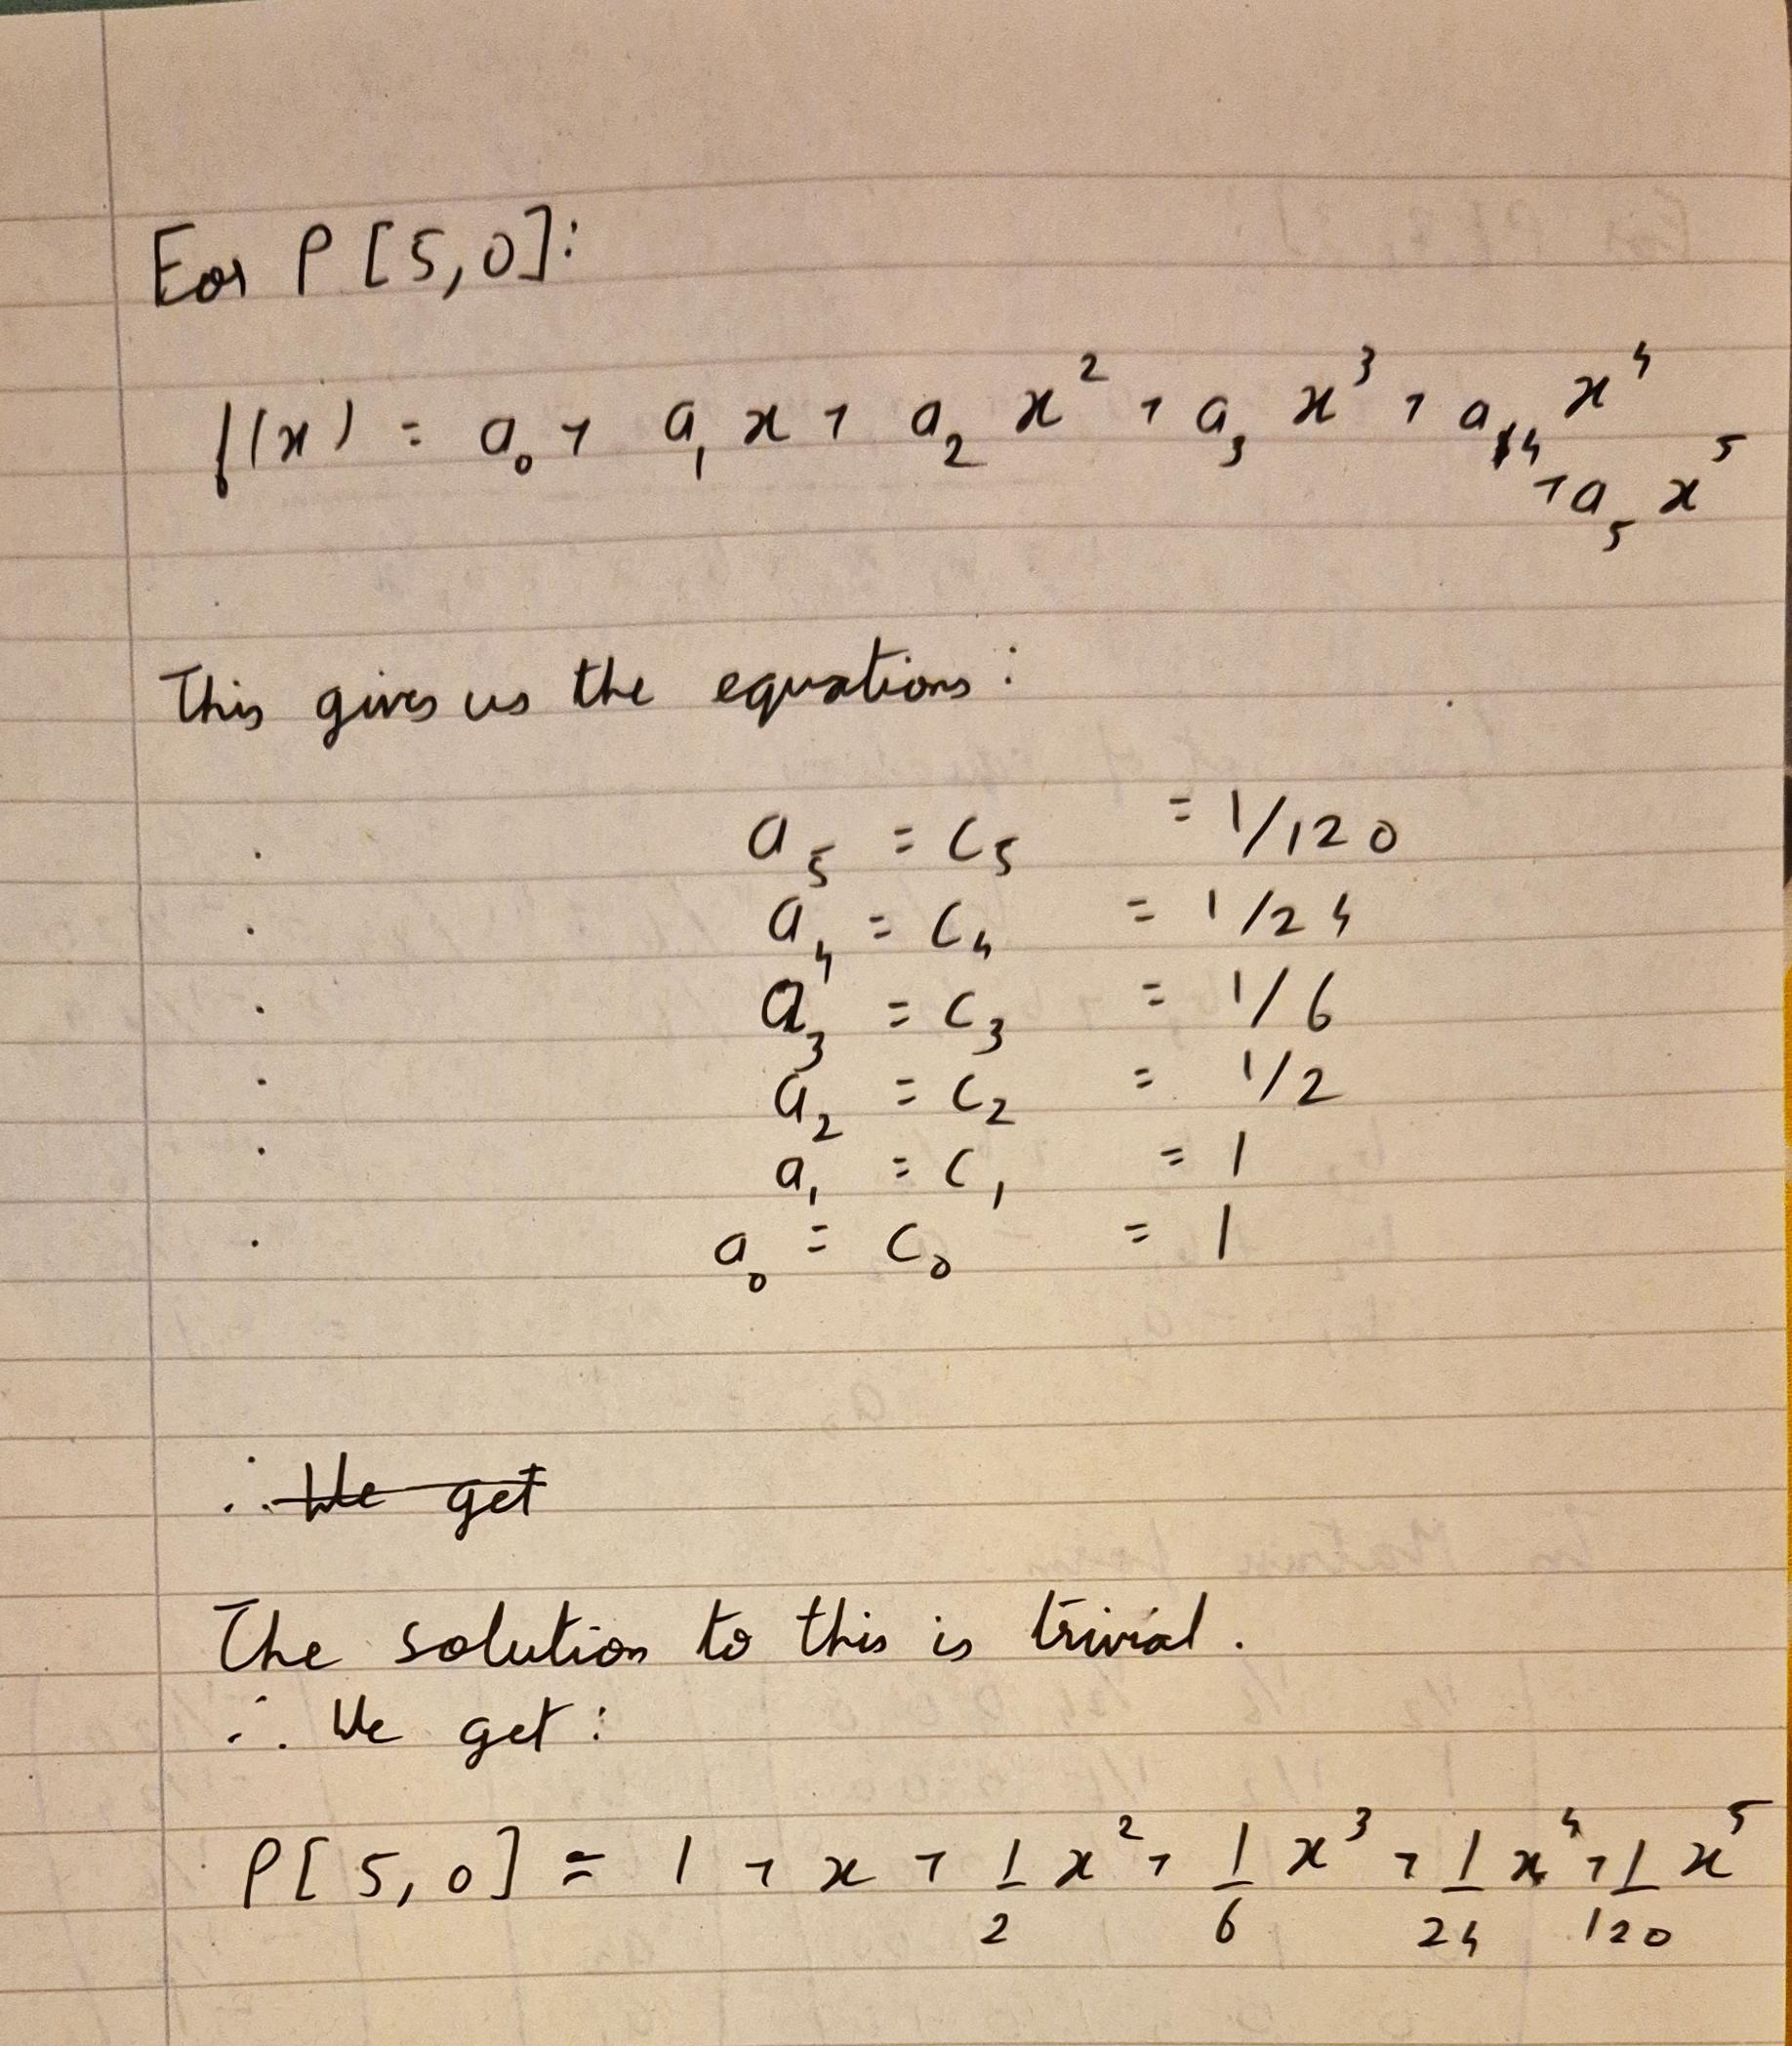 For P[5,0]:
f(x) = a₀ + a₁ x + a₂ x² + a₃ x³ + a₄ x⁴
+ a₅ x⁵
This gives us the equations:
. a₅ = c₅ = 1/120
. a₄ = c₄ = 1/24
. a₃ = c₃ = 1/6
. a₂ = c₂ = 1/2
. a₁ = c₁ = 1
. a₀ = c₀ = 1
∴ We get
The solution to this is trivial.
∴ We get:
P[5,0] = 1 + x + 1/2 x² + 1/6 x³ + 1/24 x⁴ + 1/120 x⁵